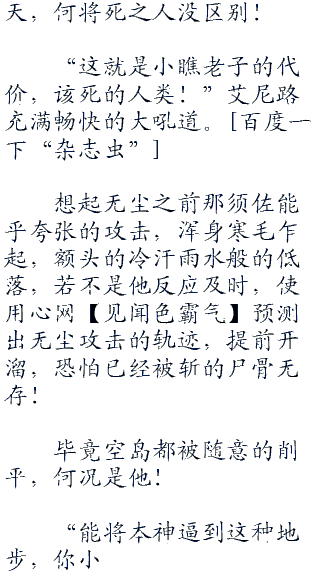 天，何将死之人没区别！
“这就是小瞧老子的代
价，该死的人类！”艾尼路
充满畅快的大吼道。[百度一
下“杂志虫”]
想起无尘之前那须佐能
乎夸张的攻击，浑身寒毛乍
起，额头的冷汗雨水般的低
落，若不是他反应及时，使
用心网【见闻色霸气】预测
出无尘攻击的轨迹，提前开
溜，恐怕已经被斩的尸骨无
存！
毕竟空岛都被随意的削
平，何况是他！
“能将本神逼到这种地
步，你小